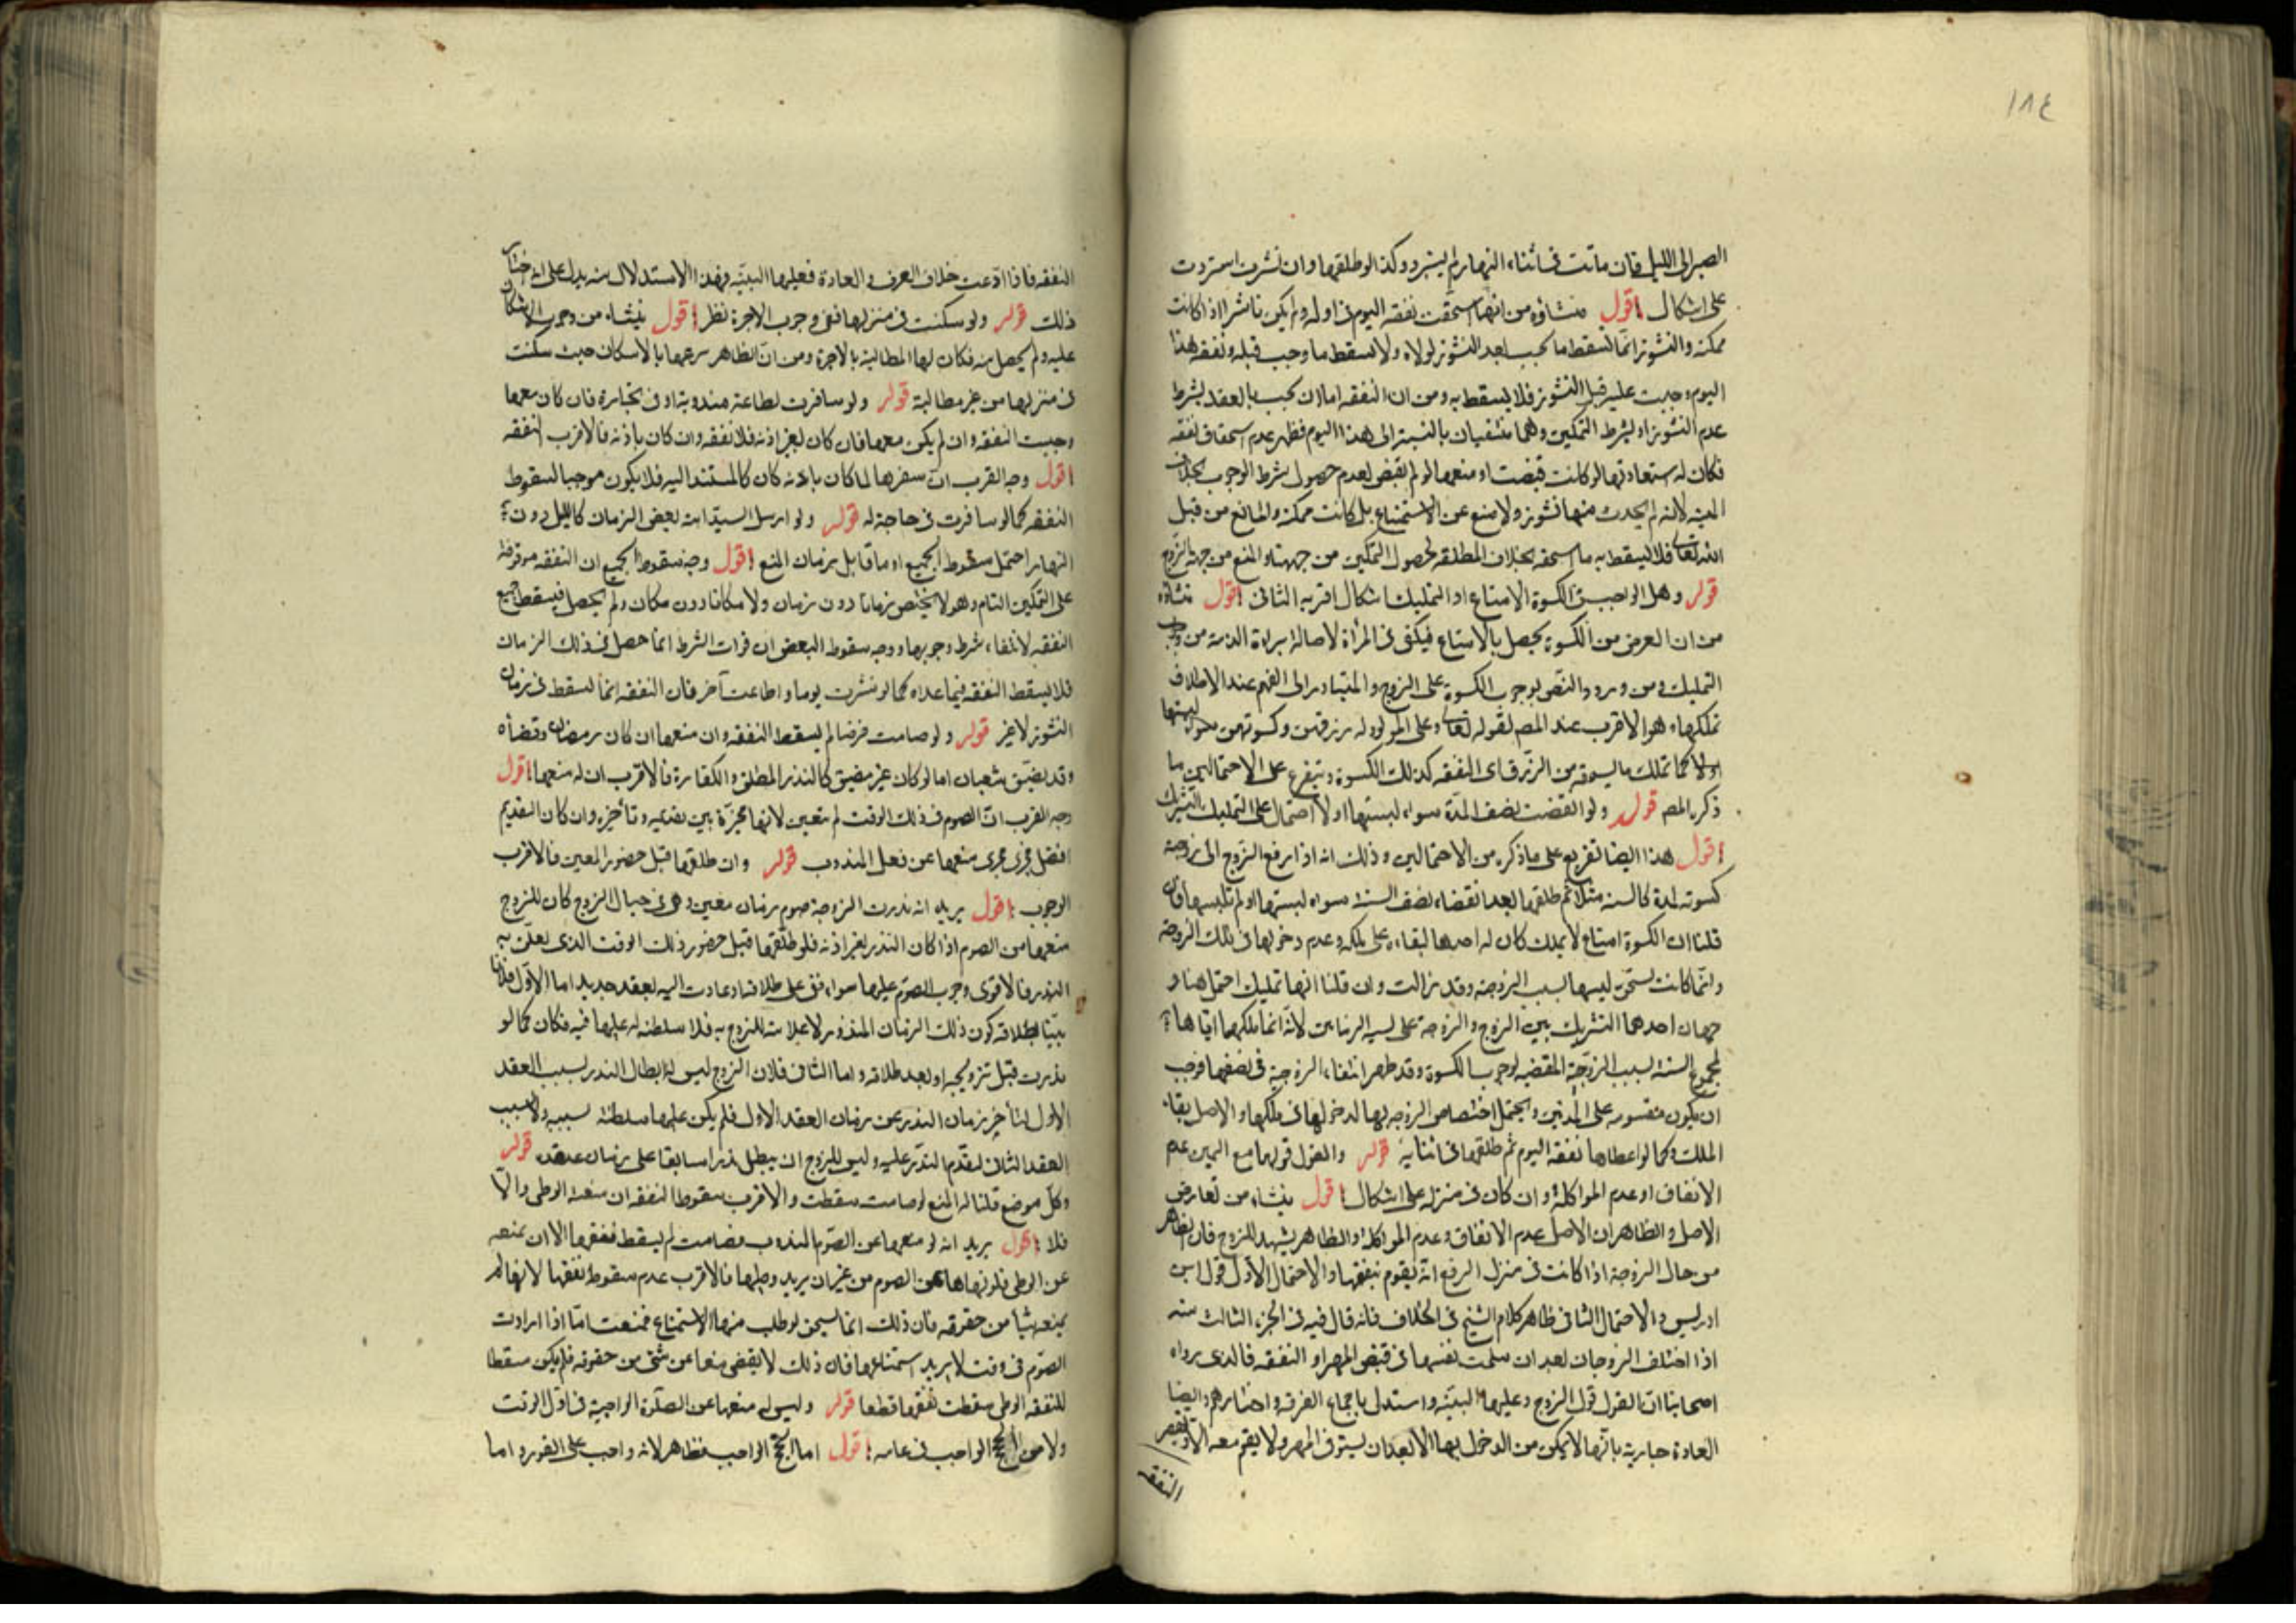 ١٨٤
الصبر الى الليل فان ماتت فى اثناء النهار لم يسترد وكذا لو طلقها وان نشزت استردت
على اشكال اقول منشاؤه من انها استحقت نفقه اليوم فى اوله ولم يكن ناشزا اذا كانت
ممكنه والنشوز انما يسقط ما يجب بعد النشوز لولاه ولا يسقط ما وجب قبله ونفقه هذا
اليوم وجبت عليه قبل النشوز فلا يسقط به ومن ان النفقه اما ان يجب بالعقد بشرط
عدم النشوز او بشرط التمكين وهما منتفيان بالنسبة الى هذا اليوم فظهر عدم استحقاق نفقه
فكان له استعادتها لو كانت قبضت او منعها لو لم تقبض لعدم حصول شرط الوجوب بخلاف
الميته لانه لم يحدث منها نشوز ولا منع عن الاستمتاع بل كانت ممكنه والمانع من قبل
الله تعالى فلا يسقط به ما استحقه بخلاف المطلقه لحصول التمكين من جهتها والمنع من جهة الزوج
قوله وهل الواجب فى الكسوة الامتاع او التمليك اشكال اقربه الثانى اقول منشاؤه
من ان الغرض من الكسوة يحصل بالامتاع فيكفى فى المرأة لاصالة براءة الذمة من وجوب
التمليك ومن ورود النص بوجوب الكسوة على الزوج والمتبادر الى الفهم عند الاطلاق
تملكها وهو الاقرب عند المص لقوله تعالى وعلى المولود له رزقهن وكسوتهن سواء لبستها
اولا كما تملك ما يستحقه من الرزق اى النفقه كذلك الكسوة ويتفرع على الاحتمالين ما
ذكره المص قوله ولو انقضت نصف المدة سواء لبستها او لا احتمل على التمليك التشريك
اقول هذا ايضا تفريع على ما ذكره من الاحتمالين وذلك انه اذا دفع الزوج الى زوجته
كسوته لمدة كالسنه مثلا ثم طلقها بعد انقضاء نصف السنه سواء لبستها او لم تلبسها فان
قلنا ان الكسوة امتاع لا تمليك كان له اخذها لبقاءه على ملكه وعدم دخولها فى ملك الزوجة
وانما كانت تستحق لبسها بسبب الزوجية وقد زالت وان قلنا انها تمليك احتمل هنا و
جهان احدهما التشريك بين الزوج والزوجة على نسبة الزمانين لانه انما ملكها اياها
لمجموع السنة بسبب الزوجية المقتضيه لوجوب الكسوة وقد ظهر انتفاء الزوجية فى نصفها فوجب
ان يكون مقسومه على المدتين ويحتمل اختصاص الزوجه بها لدخولها فى ملكها والاصل بقاء
الملك وكما لو اعطاها نفقه اليوم ثم طلقها فى اثنائه قوله والقول قولها مع اليمين عدم
الانفاق او عدم المواكلة وان كان فى منزله على اشكال اقول ينشاء من تعارض
الاصل والظاهر ان الاصل عدم الانفاق وعدم المواكلة والظاهر يشهد للزوج فان الظاهر
من حال الزوجة اذا كانت فى منزل الزوج انه يقوم بنفقتها والاحتمال الاول قول ابن
ادريس والاحتمال الثانى ظاهر كلام الشيخ فى الخلاف فانه قال فيه فى الجزء الثالث منه
اذا اختلف الزوجان بعد ان سلمت نفسها فى قبض المهر او النفقه فالذى رواه
اصحابنا ان القول قول الزوج وعليها البينه واستدل باجماع الفرقه واخبارهم وايضا
العادة جاريه بانها لا يمكن من الدخول بها الا بعد ان يستوفى المهر ولا يقيم معه الا
النفقه
النفقه فاذا ادعت خلاف العرف والعادة فعليها البينه وهذا الاستدلال منه يدل على
ذلك قوله ولو سكنت فى منزلها ففى وجوب الاجرة نظر اقول ينشاء من وجوب الاسكان
عليه ولم يحصل منه فكان لها المطالبة بالاجرة ومن ان الظاهر تبرعها بالاسكان حيث سكنت
فى منزلها من غير مطالبة قوله ولو سافرت لطاعة مندوبة او فى تجارة فان كان معها
وجبت النفقه وان لم يكن معها فان كان لغير اذنه فلا نفقه وان كان باذنه فالاقرب النفقه
اقول وجه القرب ان سفرها لما كان باذنه كان كالمستند اليه فلا يكون موجبا لسقوط
النفقه كما لو سافرت فى حاجة له قوله ولو ارسل السيد امته بعض الزمان كالليل دون
النهار احتمل سقوط الجميع او ما قابل زمان المنع اقول وجه سقوط الجميع ان النفقه موقوفة
على التمكين التام وهو لا يختص زمانا دون زمان ولا مكانا دون مكان ولم يحصل فيسقط جميع
النفقه لانتفاء شرط وجوبها ووجه سقوط البعض ان فوات الشرط انما حصل فى ذلك الزمان
فلا يسقط النفقه فيما عداه كما لو نشزت يوما واطاعت آخر فان النفقه انما تسقط فى زمان
النشوز لا غير قوله ولو صامت فرضا لم يسقط النفقه وان منعها ان كان رمضان وقضاه
وقد تضيق شعبان اما لو كان غير مضيق كالنذر المطلق والكفارة فالاقرب ان له منعها اقول
وجه القرب ان الصوم فى ذلك الوقت لم يتعين لانها مخيرة بين تقديمه وتأخيره وان كان التقديم
افضل فجرى مجرى منعها عن فعل المندوب قوله وان طلقها قبل حضور المعين فالاقرب
الوجوب اقول يريد انه نذرت الزوجة صوم زمان معين وهى فى حبال الزوج كان للزوج
منعها من الصوم اذا كان النذر بغير اذنه فلو طلقها قبل حضور ذلك الوقت الذى تعلق به
النذر فالاقوى وجوب الصوم عليها سواء بقى على طلاقه او عادت اليه بعقد جديد اما الاول فلانا
تبينا بطلاقه كون ذلك الزمان المنذور لا علاقة للزوج به فلا سلطنه له عليها فيه فكان كما لو
نذرت قبل تزويجه او بعد طلاقه واما الثانى فلان الزوج ليس له ابطال النذر بسبب العقد
الاول لتأخر زمان النذر عن زمان العقد الاول فلم يكن عليها سلطنة بسببه ولا بسبب
العقد الثانى لتقدم النذر عليه وليس للزوج ان يبطل نذرا سابقا على زمان عقده قوله
وكل موضع قلنا له المنع لو صامت سقطت والاقرب سقوط النفقه ان منعته الوطى والا
فلا اقول يريد انه لو منعها عن الصوم المندوب فصامت لم يسقط نفقتها الا ان تمنعه
عن الوطى فلو نهاها عن الصوم من غير ان يريد وطيها فالاقرب عدم سقوط نفقتها لانها لم
تمنعه شيئا من حقوقه فان ذلك انما يستحق لو طلب منها الاستمتاع فمنعت اما اذا ارادت
الصوم فى وقت لا يريد استمتاعها فان ذلك لا يقضى منعا عن شىء من حقوقه فلم يكن مسقطا
للنفقه الوطى سقطت نفقتها قطعا قوله وليس له منعها عن الصلوة الواجبة فى اول الوقت
ولا من الحج الواجب فى عامه اقول اما الحج الواجب فظاهر لانه واجب على الفور واما